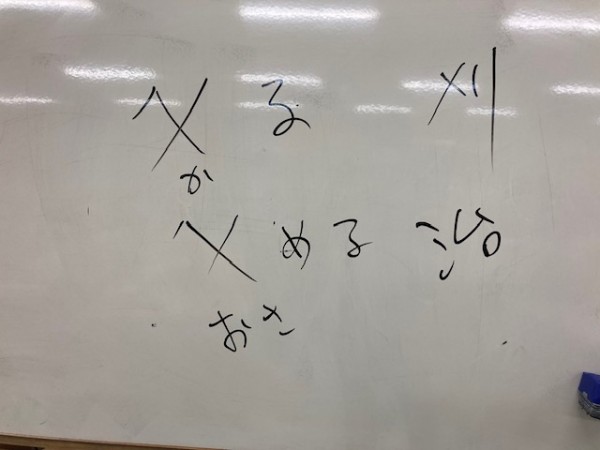 乂る 刈
か
乂める 治
おさ